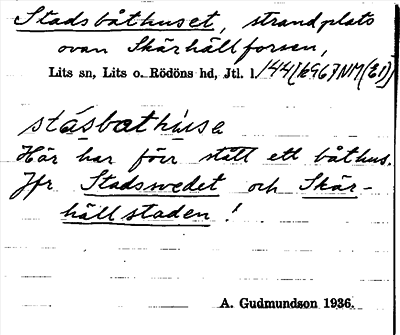 Stadsbåthuset, strandplats
ovan Skärhällforsen,
Lits sn, Lits o. Rödöns hd, Jtl. l
stásbothusa
Här har förr stått ett båthus.
Jfr Stadssvedet och Skär-
hällstaden!
A. Gudmundson 1936.